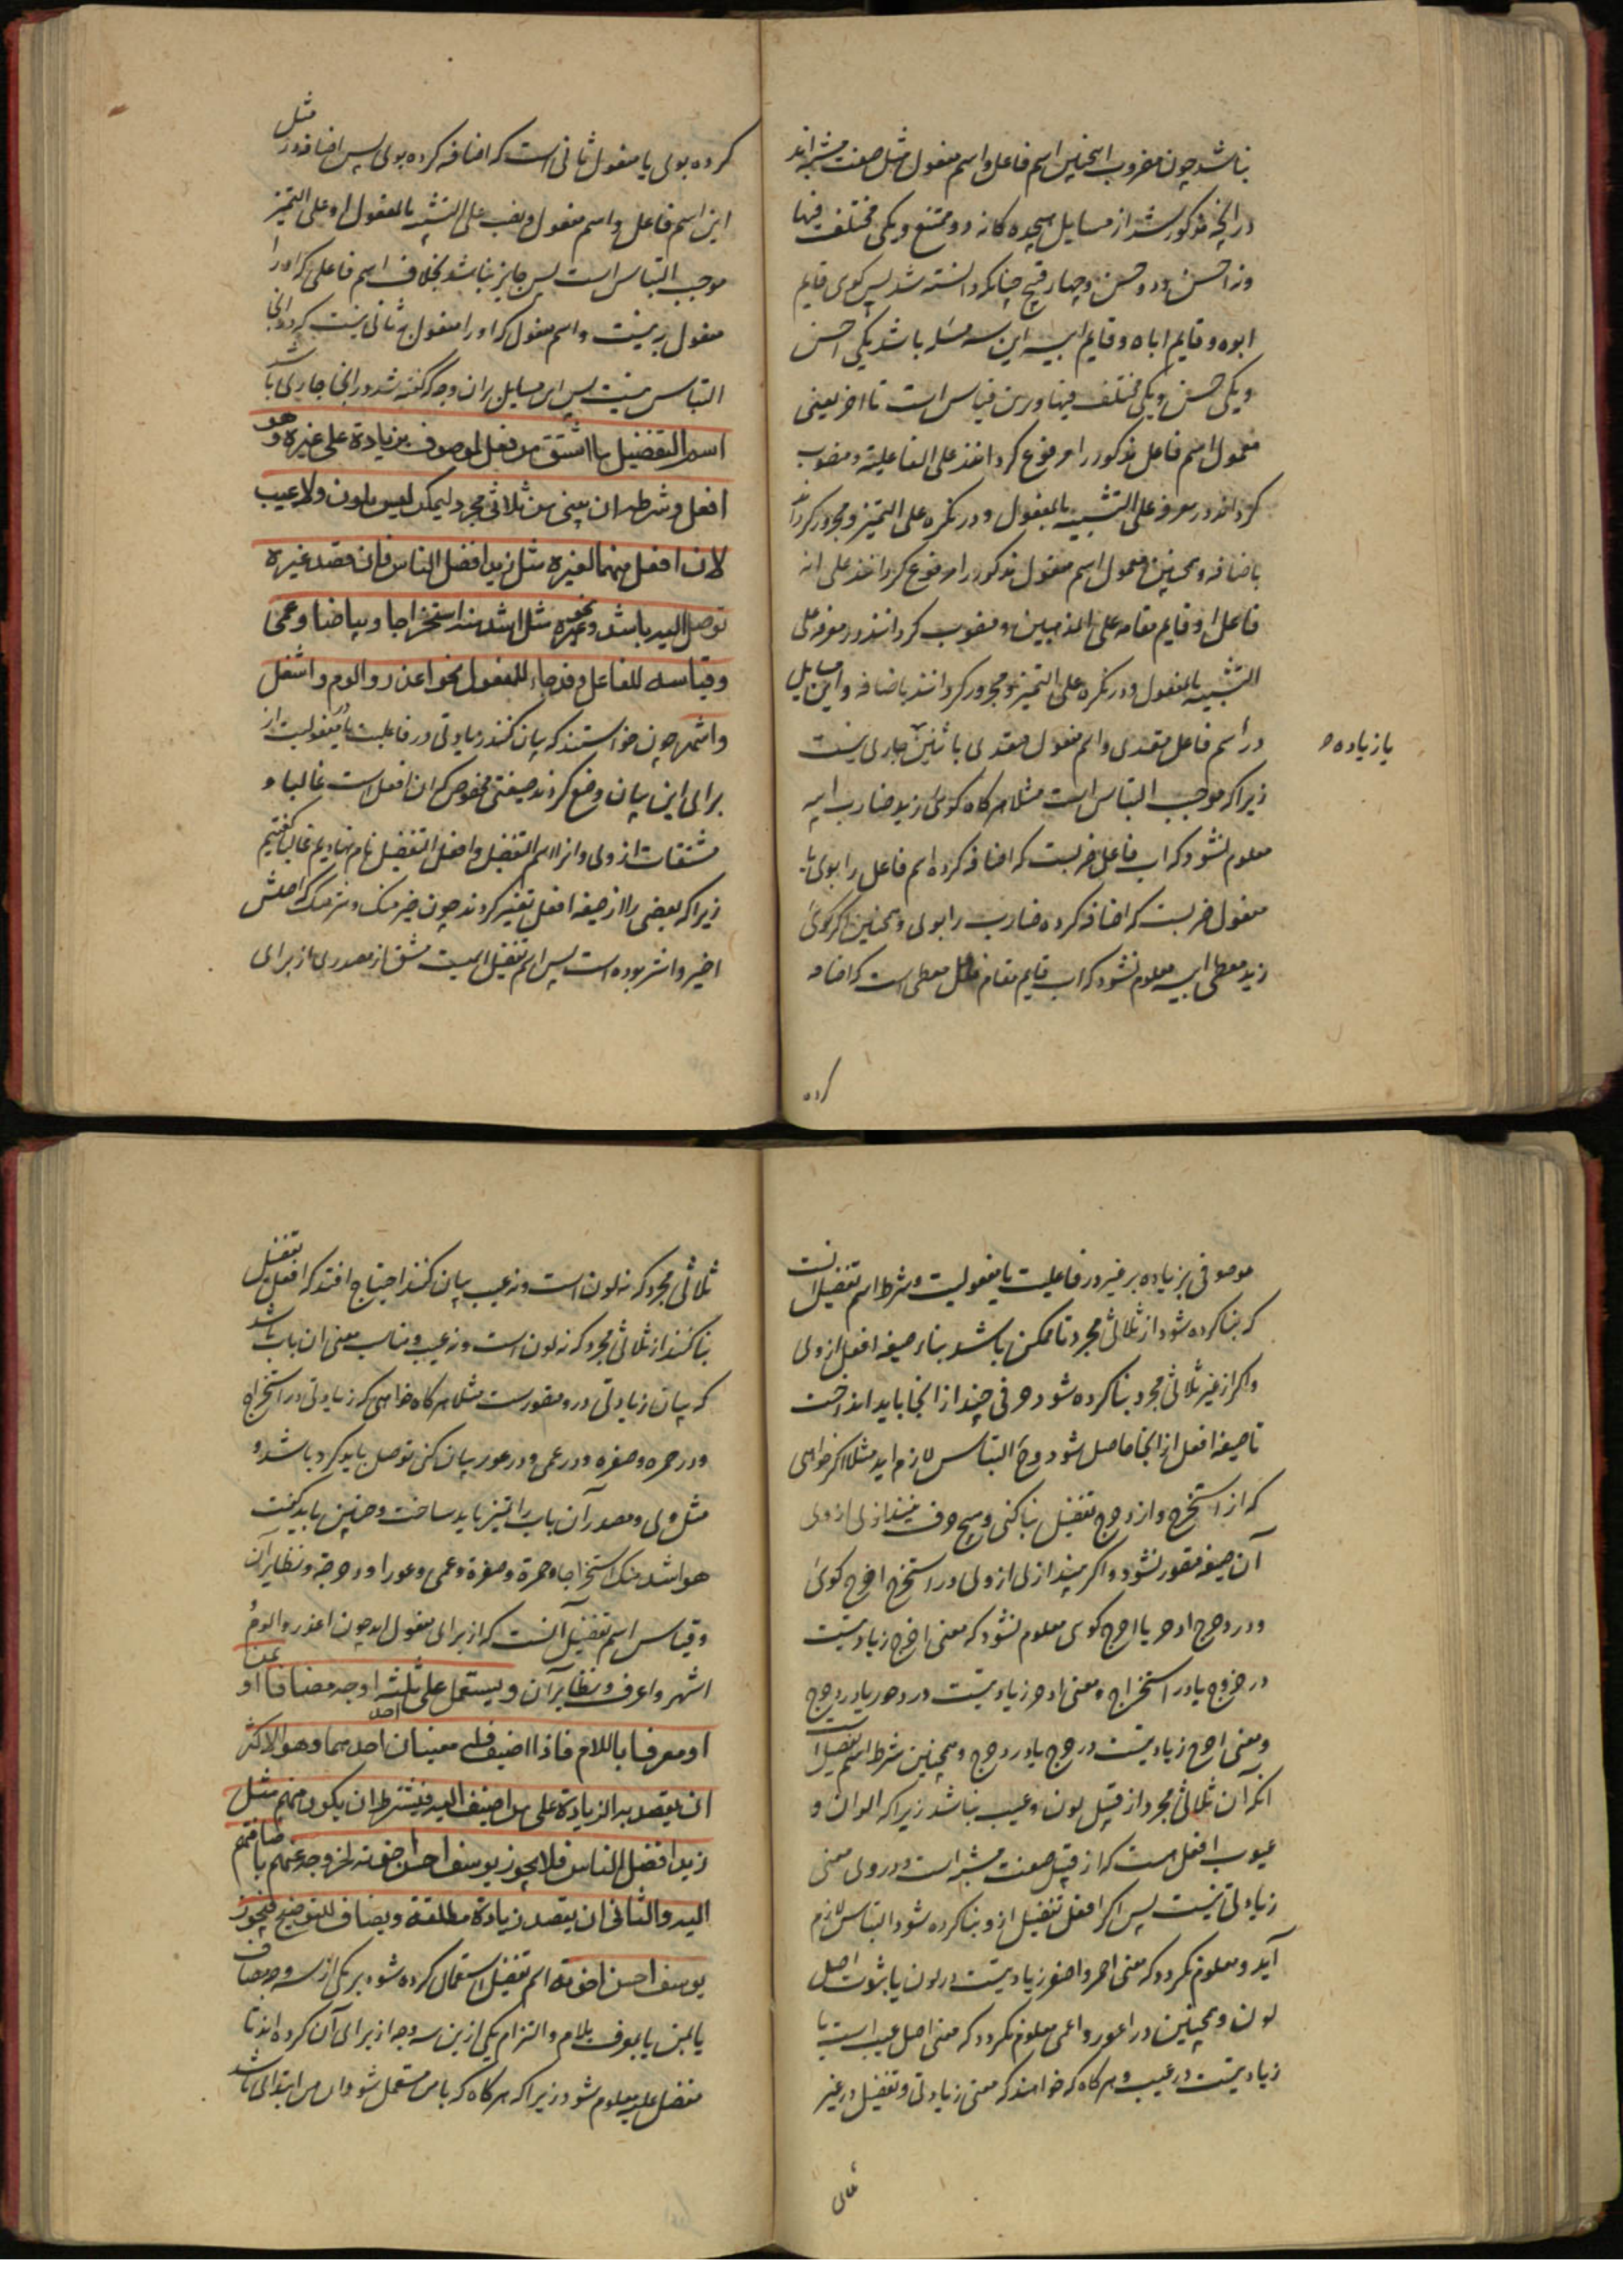 نباشد چون مضروب همچنین اسم فاعل و اسم مفعول مثل صفت مشبه اند
در آنچه مذکور شد از مسایل هیجده کانه دو ممتنع و یکی مختلف فیها
ونه احسن ودو حسن وچهار قبیح چنانکه دانسته شد پس کوی قایم
ابوه وقایم اباه وقایم ابیه این سه مسئله باشد یکی احسن
ویکی حسن ویکی مختلف فیها وبرین قیاس است تا اخر یعنی
معمول اسم فاعل مذکور را مرفوع کردانند علی الفاعلیة ومنصوب
کردانند در معرفه علی التشبیه بالمفعول ودر نکره علی التمیز ومجرور کردانند
باضافه وهمچنین معمول اسم مفعول مذکور را مرفوع کردانند علی انه
فاعل او قایم مقامه علی المذهبین ومنصوب کردانند در معرفه علی
التشبیه بالمفعول ودر نکره علی التمیز ومجرور کردانند باضافه واین مسایل
در اسم فاعل متعدی واسم مفعول متعدی باثنین جاری نیست
یا زیاده
زیرا که موجب التباس است مثلا هرکاه کوی زید ضارب ابیه
معلوم نشود که اب فاعل ضربست که اضافه کرده اسم فاعل را بوی یا
مفعول ضربست که اضافه کرده ضارب را بوی وهمچنین اکر کوی
زید معطی ابیه معلوم نشود که اب قایم مقام فاعل معطی است که اضافه
کرده
کرده بوی یا مفعول ثانی است که اضافه کرده بوی پس اضافه در مثل
این اسم فاعل واسم مفعول ونصب علی التشبیه بالمفعول او علی التمیز
موجب التباس است پس جایز نباشد بخلاف اسم فاعلی که اورا
مفعول به نیست واسم مفعول که اورا مفعول به ثانی نیست که در انجا
التباس نیست پس این مسایل بران وجه که کفته شد در انجا جاری باشد
اسم التفضیل ما اشتق من فعل لموصوف بزیادة علی غیره وهو
افعل وشرطه ان یبنی من ثلاثی مجرد لیمکن لیس بلون ولا عیب
لان افعل منهما لغیره مثل زید افضل الناس فان قصد غیره
توصل الیه باشد ونحوه مثل اشد منه استخراجا وبیاضا وعمی
وقیاسه للفاعل وقد جاء للمفعول نحو اعذر والوم واشغل
واشهر چون خواستند که بیان کنند زیادتی در فاعلیت یا در مفعولیت از
برای این بیان وضع کردند صیغتی مخصوص که ان افعل است غالبا و
مشتقات از وی وانرا اسم التفضیل وافعل التفضیل نام نهادیم غالبا کفتیم
زیرا که بعضی را از صیغه افعل تغییر کردند چون خیر منک وشر منک که اصلش
اخیر واشر بوده است پس اسم تفضیل اسمیست مشتق از مصدری از برای
موصوفی بزیاده بر غیر در فاعلیت یا مفعولیت وشرط اسم تفضیل انست
که بنا کرده شود از ثلاثی مجرد تا ممکن باشد بناء صیغه افعل از وی
واکر از غیر ثلاثی مجرد بنا کرده شود حرفی چند از انجا باید انداخت
تا صیغه افعل از انجا حاصل شود وح التباس لازم اید مثلا اکر خواهی
که از استخرج واز دحرج تفضیل بنا کنی وهیچ حرف نیندازی از وی
آن صیغه متصور نشود واکر بیندازی از وی در استخرج اخرج کوی
ودر دحرج ادحر یا احرج کوی معلوم نشود که معنی اخرج زیادتیست
در خروج یا در استخراج ومعنی ادحر زیادتیست در دحور یا در دحرج
ومعنی احرج زیادتیست در حرج یا در دحرج وهمچنین شرط اسم تفضیل است
انکه ان ثلاثی مجرد از قبیل لون وعیب نباشد زیرا که الوان و
عیوب افعل هست که از قبیل صفت مشبه است ودر وی معنی
زیادتی نیست پس اکر افعل تفضیل ازو بنا کرده شود التباس لازم
آید ومعلوم نکردد که معنی احمر واصفر زیادتیست در لون یا ثبوت اصل
لون وهمچنین در اعور واعمی معلوم نکردد که معنی اصل عیب است یا
زیادتیست در عیب وهرکاه که خواهند که معنی زیادتی وتفضیل در غیر
ثلاثی
ثلاثی مجرد که نه لون است ونه عیب بیان کنند احتیاج افتد که افعل تفضیل
بنا کنند از ثلاثی مجرد که نه لون است ونه عیب ومناسب معنی ان باب باشد
که بیان زیادتی درو مقصورست مثلا هرکاه خواهی که زیادتی در استخراج
ودر حمره وصفره ودر عمی ودر عور بیان کنی توصل باید کرد باشد و
مثل وی ومصدر آن باب را تمیز باید ساخت وچنین باید کفت
هو اشد منک استخراجا وحمرة وصفرة وعمی وعورا ودحرجة ونظایر آن
وقیاس اسم تفضیل آنست که از برای مفعول اید چون اعذر والوم
اشهر واعرف ونظایر آن ویستعمل علی ثلثه اوجه مضافا او بمن
او معرفا باللام فاذا اضیف فله معنیان احدهما وهو الاکثر
ان یقصد به الزیادة علی من اضیف الیه فیشترط ان یکون منهم مثل
زید افضل الناس فلا یجوز یوسف احسن اخوته لخروجه عنهم باضافتهم
الیه والثانی ان یقصد زیادة مطلقة ویضاف للتوضیح فیجوز
یوسف احسن اخوته اسم تفضیل استعمال کرده شود بر یکی از سه وجه مضاف
یا بمن یا معرف بلام والتزام یکی ازین سه وجه از برای آن کرده اند تا
مفضل علیه معلوم شود زیرا که هرکاه که با من مستعمل شود ان من ابتدائی باشد